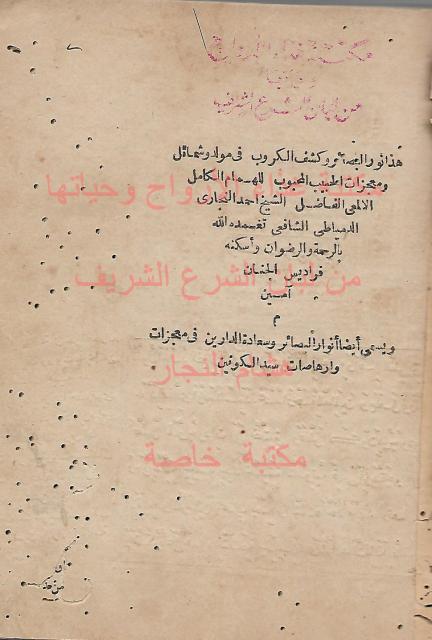 هذا نور البصائر وكشف الكروب فى مولد وشمائل
ومعجزات الحبيب المحبوب للهمام الكامل
الالمعى الفاضل الشيخ احمد النجارى
الدمياطى الشافعى تغمده الله
بالرحمة والرضوان وأسكنه
فراديس الجنان
آمين
م
ويسمى أيضا أنوار البصائر وسعادة الدارين فى معجزات
وارهاصات سيد الكونين
مكتبة غذاء الأرواح وحياتها
من لبان الشرع الشريف
هشام النجار
مكتبة خاصة